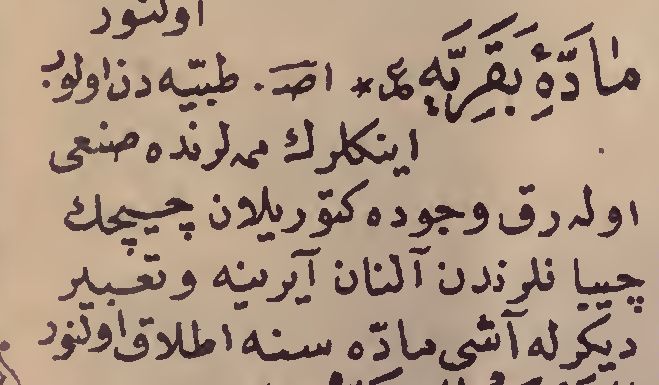 اولنور
مادّهٔ بَقَرِیَّه ع* اصـ. طبيّه دن اولوب
اینكلرك ممه لرنده صنعی
اوله رق وجوده كتوریلان چیچك
چیبانلرندن آلنان آیرینه و تعبیر
دیكرله آشی مادّه سنه اطلاق اولنور